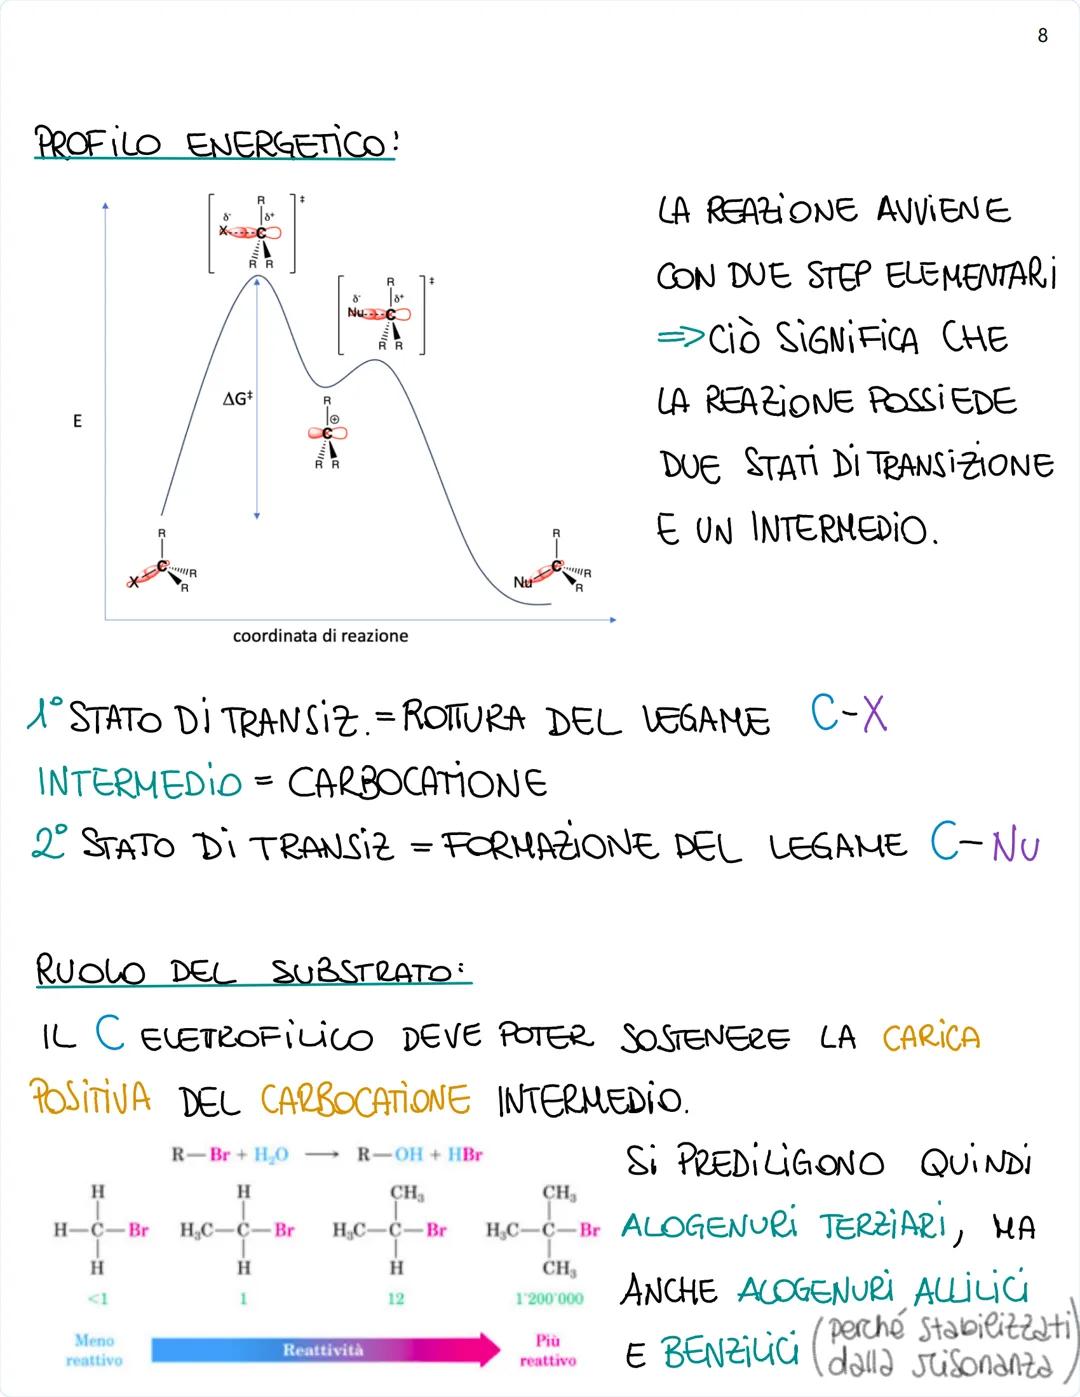 8
PROFILO ENERGETICO:
R
δ- δ+ ‡
X C
R R
R
δ- δ+ ‡
Nu C
R R
ΔG‡
E
R
⊕
C
R R
R
X C R
R
R
Nu C R
R
coordinata di reazione
LA REAZIONE AVVIENE
CON DUE STEP ELEMENTARI
=> CIÒ SIGNIFICA CHE
LA REAZIONE POSSIEDE
DUE STATI DI TRANSIZIONE
E UN INTERMEDIO.
1° STATO DI TRANSIZ. = ROTTURA DEL LEGAME C-X
INTERMEDIO = CARBOCATIONE
2° STATO DI TRANSIZ = FORMAZIONE DEL LEGAME C-NU
RUOLO DEL SUBSTRATO:
IL C ELETROFILICO DEVE POTER SOSTENERE LA CARICA
POSITIVA DEL CARBOCATIONE INTERMEDIO.
R—Br + H₂O ⟶ R—OH + HBr
H H CH₃ CH₃
H—C—Br H₃C—C—Br H₃C—C—Br H₃C—C—Br
H H H CH₃
<1 1 12 1'200'000
Meno reattivo
Reattività
Più reattivo
SI PREDILIGONO QUINDI
ALOGENURI TERZIARI, MA
ANCHE ALOGENURI ALLILICI
E BENZILICI (perché stabilizzati
dalla risonanza)